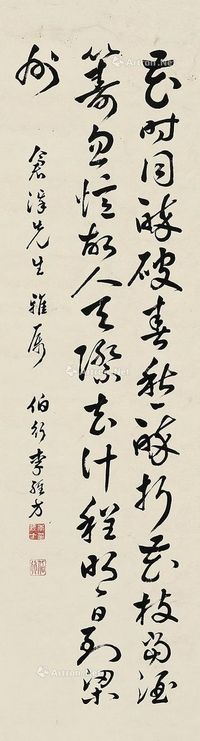 花时同醉破春愁醉折花枝当酒
筹忽忆故人天际去计程明日到梁
州
仓潭先生雅属 伯行李经方